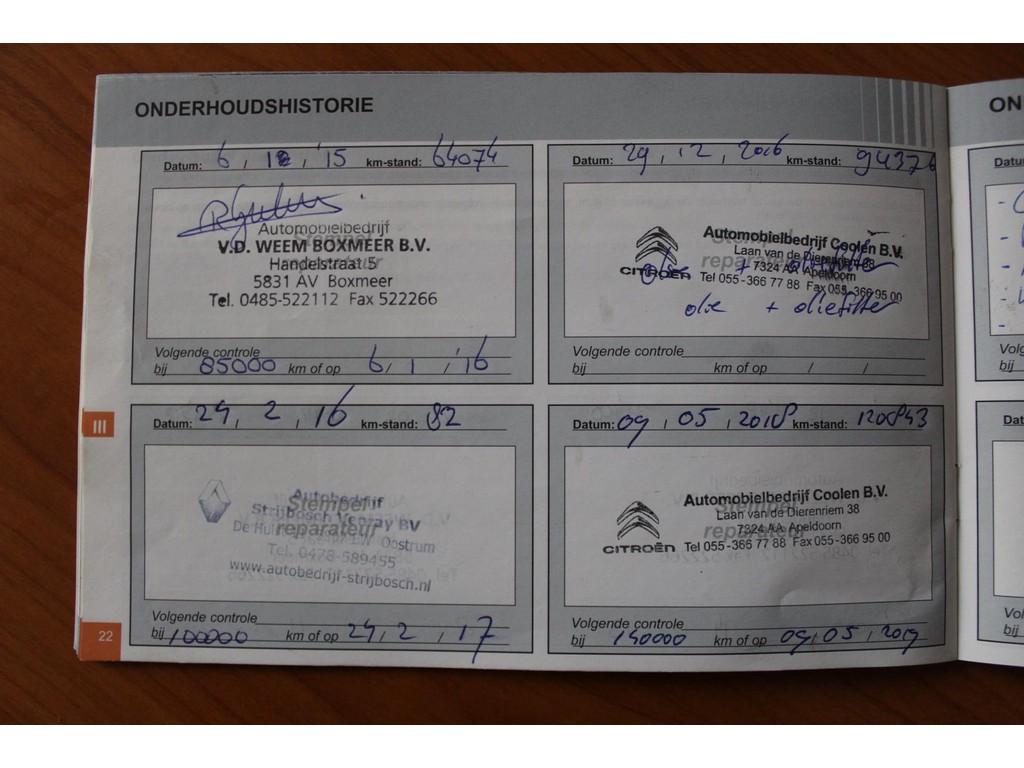 ONDERHOUDSHISTORIE
Datum: 6, 12, '15 km-stand: 64074
Automobielbedrijf
V.D. WEEM BOXMEER B.V.
Stempel
Handelstraat 5
reparateur
5831 AV Boxmeer
Tel. 0485-522112 Fax 522266
Volgende controle
bij 85000 km of op 6, 1, '16
Datum: 29, 12, 2016 km-stand: 94376
Automobielbedrijf Coolen B.V.
Stempel
Laan van de Dierenriem 38
reparateur
7324 AA Apeldoorn
CITROËN
Tel 055-366 77 88 Fax 055-366 95 00
olie + oliefilter
Volgende controle
bij km of op / /
Datum: 24, 2, 16 km-stand: 82
Autobedrijf
Stempel
Strijbosch Venray BV
reparateur
Oostrum
Tel. 0478-589455
www.autobedrijf-strijbosch.nl
Volgende controle
bij 100000 km of op 24, 2, 17
Datum: 09, 05, 2018 km-stand: 120843
Automobielbedrijf Coolen B.V.
Stempel
Laan van de Dierenriem 38
reparateur
7324 AA Apeldoorn
CITROËN
Tel 055-366 77 88 Fax 055-366 95 00
Volgende controle
bij 140000 km of op 09, 05, 2019
III
22
ON
Datu
Volg
bij
Dat
Vol
bij